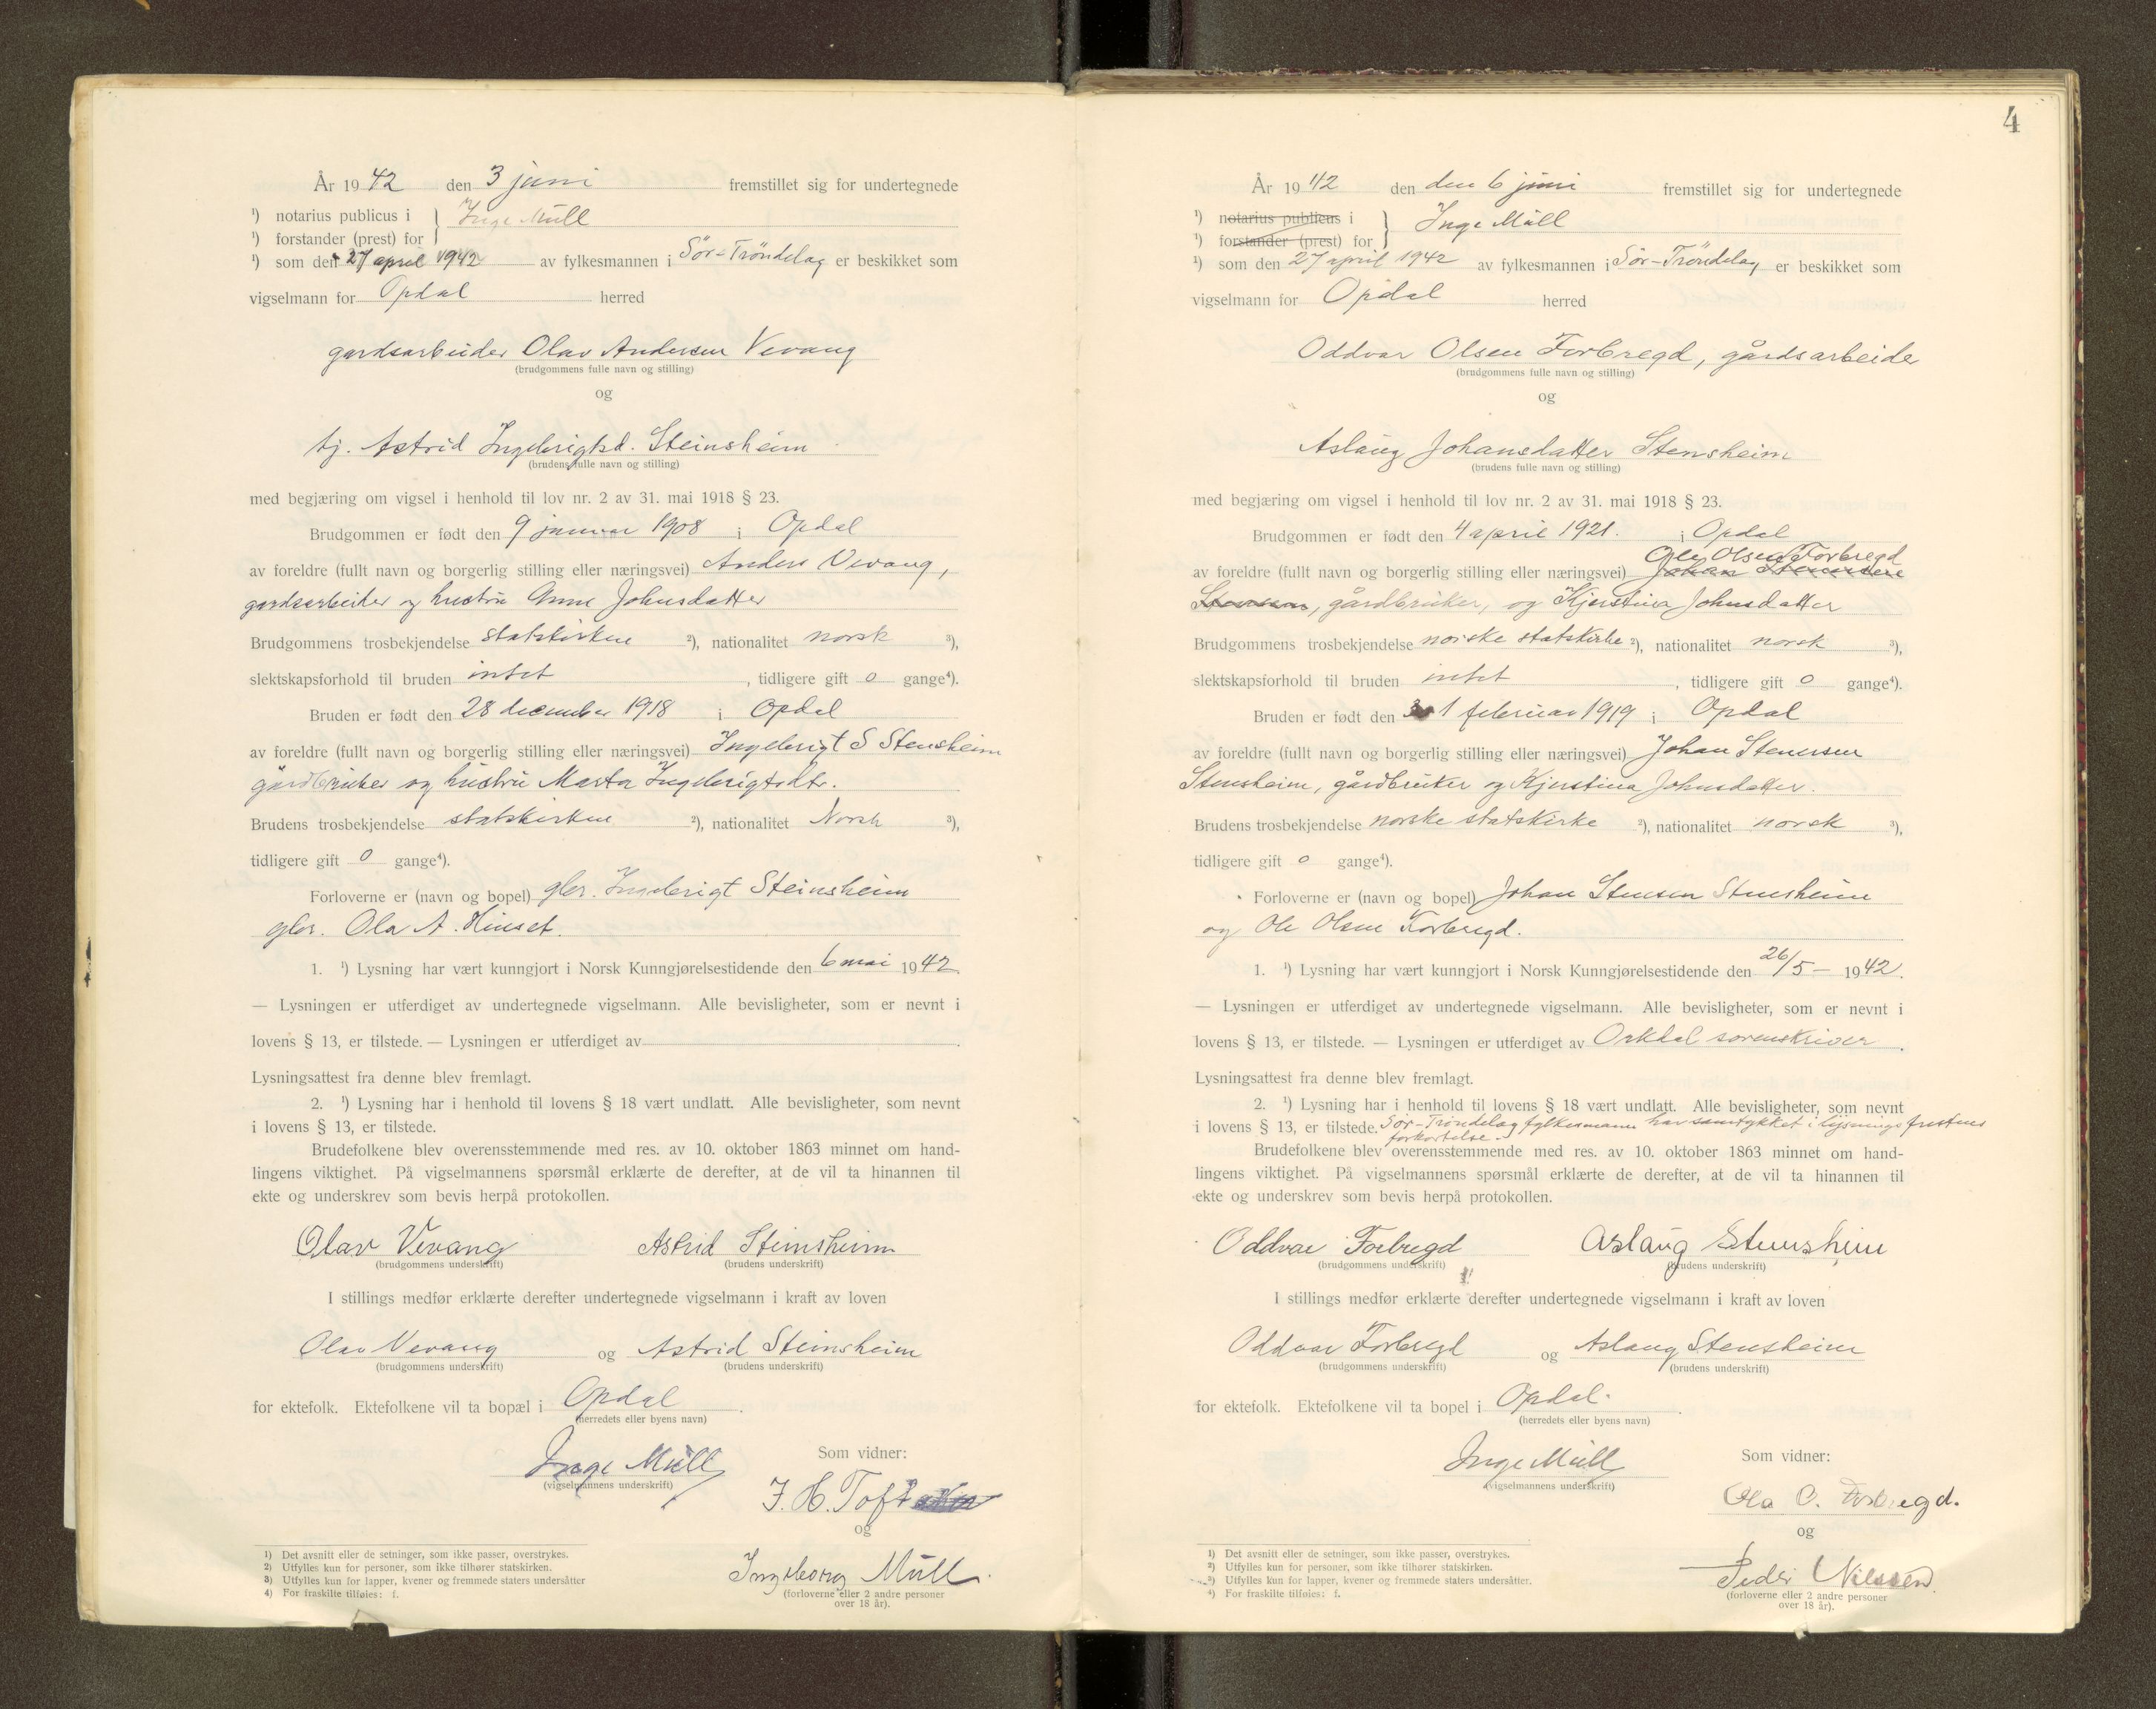 År 1942 den 3 juni fremstillet sig for undertegnede
¹) notarius publicus i } Inge Müll
¹) forstander (prest) for
¹) som den 27 april 1942 av fylkesmannen i Sör-Tröndelag er beskikket som
vigselmann for Opdal herred
gardsarbeider Olav Andersen Vevang
(brudgommens fulle navn og stilling)
og
tj. Astrid Ingebrigtsd. Steinsheim
(brudens fulle navn og stilling)
med begjæring om vigsel i henhold til lov nr. 2 av 31. mai 1918 § 23.
Brudgommen er født den 9 januar 1908 i Opdal
av foreldre (fullt navn og borgerlig stilling eller næringsvei) Anders Vevang,
gardsarbeider og hustru Anne Johnsdatter
Brudgommens trosbekjendelse statskirken ²), nationalitet norsk ³),
slektskapsforhold til bruden intet, tidligere gift 0 gange⁴).
Bruden er født den 28 december 1918 i Opdal
av foreldre (fullt navn og borgerlig stilling eller næringsvei) Ingebrigt S Stensheim
gårdbruker og hustru Marta Ingebrigtsdtr.
Brudens trosbekjendelse statskirken ²), nationalitet Norsk ³),
tidligere gift 0 gange⁴).
Forloverne er (navn og bopel) gbr. Ingebrigt Steinsheim
gbr. Ola A. Hinset.
1. ¹) Lysning har vært kunngjort i Norsk Kunngjørelsestidende den 6 mai 1942.
— Lysningen er utferdiget av undertegnede vigselmann. Alle bevisligheter, som er nevnt i
lovens § 13, er tilstede. — Lysningen er utferdiget av .
Lysningsattest fra denne blev fremlagt.
2. ¹) Lysning har i henhold til lovens § 18 vært undlatt. Alle bevisligheter, som nevnt
i lovens § 13, er tilstede.
Brudefolkene blev overensstemmende med res. av 10. oktober 1863 minnet om hand-
lingens viktighet. På vigselmannens spørsmål erklærte de derefter, at de vil ta hinannen til
ekte og underskrev som bevis herpå protokollen.
Olav Vevang Astrid Steinsheim
(brudgommens underskrift) (brudens underskrift)
I stillings medfør erklærte derefter undertegnede vigselmann i kraft av loven
Olav Vevang og Astrid Steinsheim
(brudgommens underskrift) (brudens underskrift)
for ektefolk. Ektefolkene vil ta bopæl i Opdal.
(herredets eller byens navn)
Som vidner:
Inge Müll
(vigselmannens underskrift)
J. H. Toft
og
Ingeborg Müll.
(forloverne eller 2 andre personer
over 18 år).
1) Det avsnitt eller de setninger, som ikke passer, overstrykes.
2) Utfylles kun for personer, som ikke tilhører statskirken.
3) Utfylles kun for lapper, kvener og fremmede staters undersåtter
4) For fraskilte tilføies: f.
4
År 1942 den den 6 juni fremstillet sig for undertegnede
¹) notarius publicus i } Inge Müll
¹) forstander (prest) for
¹) som den 27 april 1942 av fylkesmannen i Sör-Tröndelag er beskikket som
vigselmann for Opdal herred
Oddvar Olsen Forbregd, gårdsarbeide
(brudgommens fulle navn og stilling)
og
Aslaug Johansdatter Stensheim
(brudens fulle navn og stilling)
med begjæring om vigsel i henhold til lov nr. 2 av 31. mai 1918 § 23.
Brudgommen er født den 4 april 1921. i Opdal
Ole Olsen Forbregd
av foreldre (fullt navn og borgerlig stilling eller næringsvei) Johan
, gårdbruker, og Kjerstina Johnsdatter
Brudgommens trosbekjendelse norske statskirke ²), nationalitet norsk ³),
slektskapsforhold til bruden intet, tidligere gift 0 gange⁴).
Bruden er født den 1 februar 1919 i Opdal
av foreldre (fullt navn og borgerlig stilling eller næringsvei) Johan Stenersen
Stensheim, gårdbruker og Kjerstina Johnsdatter.
Brudens trosbekjendelse norske statskirke ²), nationalitet norsk ³),
tidligere gift 0 gange⁴).
Forloverne er (navn og bopel) Johan Stensen Stensheim
og Ole Olsen Forbregd.
1. ¹) Lysning har vært kunngjort i Norsk Kunngjørelsestidende den 26/5 - 1942.
— Lysningen er utferdiget av undertegnede vigselmann. Alle bevisligheter, som er nevnt i
lovens § 13, er tilstede. — Lysningen er utferdiget av Orkdal sorenskriver.
Lysningsattest fra denne blev fremlagt.
2. ¹) Lysning har i henhold til lovens § 18 vært undlatt. Alle bevisligheter, som nevnt
i lovens § 13, er tilstede. Sör-Tröndelag fylkesmann har samtykket i lysnings fristens
forkortelse.
Brudefolkene blev overensstemmende med res. av 10. oktober 1863 minnet om hand-
lingens viktighet. På vigselmannens spørsmål erklærte de derefter, at de vil ta hinannen til
ekte og underskrev som bevis herpå protokollen.
Oddvar Forbregd Aslaug Stensheim
(brudgommens underskrift) (brudens underskrift)
I stillings medfør erklærte derefter undertegnede vigselmann i kraft av loven
Oddvar Forbregd og Aslaug Stensheim
(brudgommens underskrift) (brudens underskrift)
for ektefolk. Ektefolkene vil ta bopel i Opdal.
(herredets eller byens navn)
Som vidner:
Inge Müll
(vigselmannens underskrift)
Ola O. Forbregd.
og
Peder Nilssen.
(forloverne eller 2 andre personer
over 18 år).
1) Det avsnitt eller de setninger, som ikke passer, overstrykes.
2) Utfylles kun for personer, som ikke tilhører statskirken.
3) Utfylles kun for lapper, kvener og fremmede staters undersåtter.
4) For fraskilte tilføies: f.